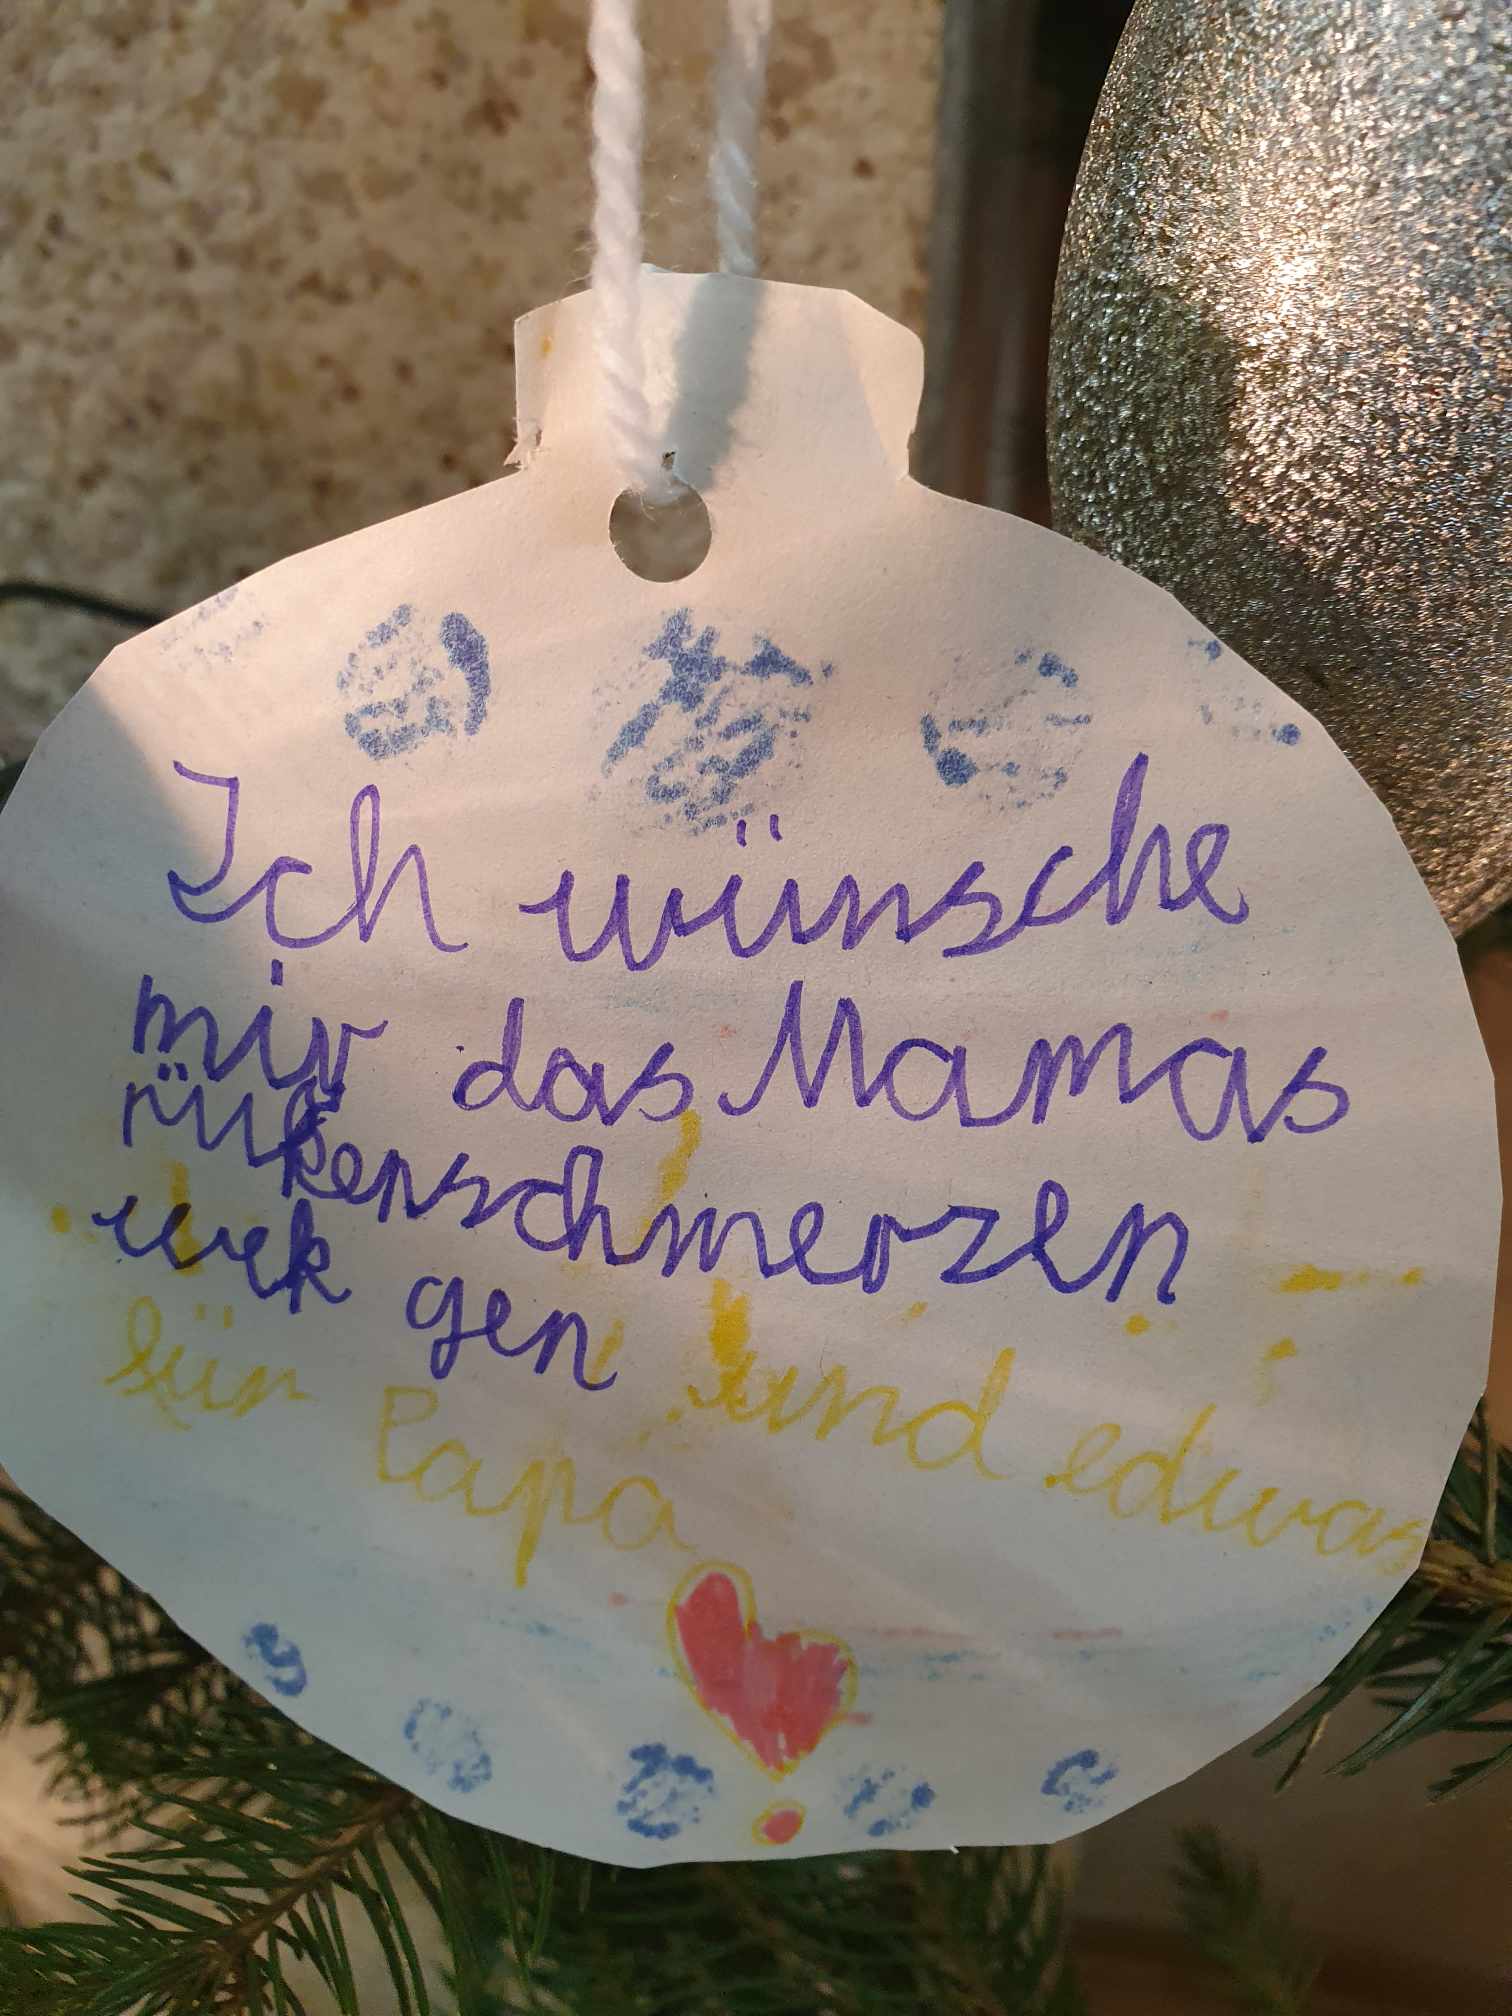 Ich wünsche
mir das Mamas
rükenschmerzen
wek gen
und edwas
für Papa